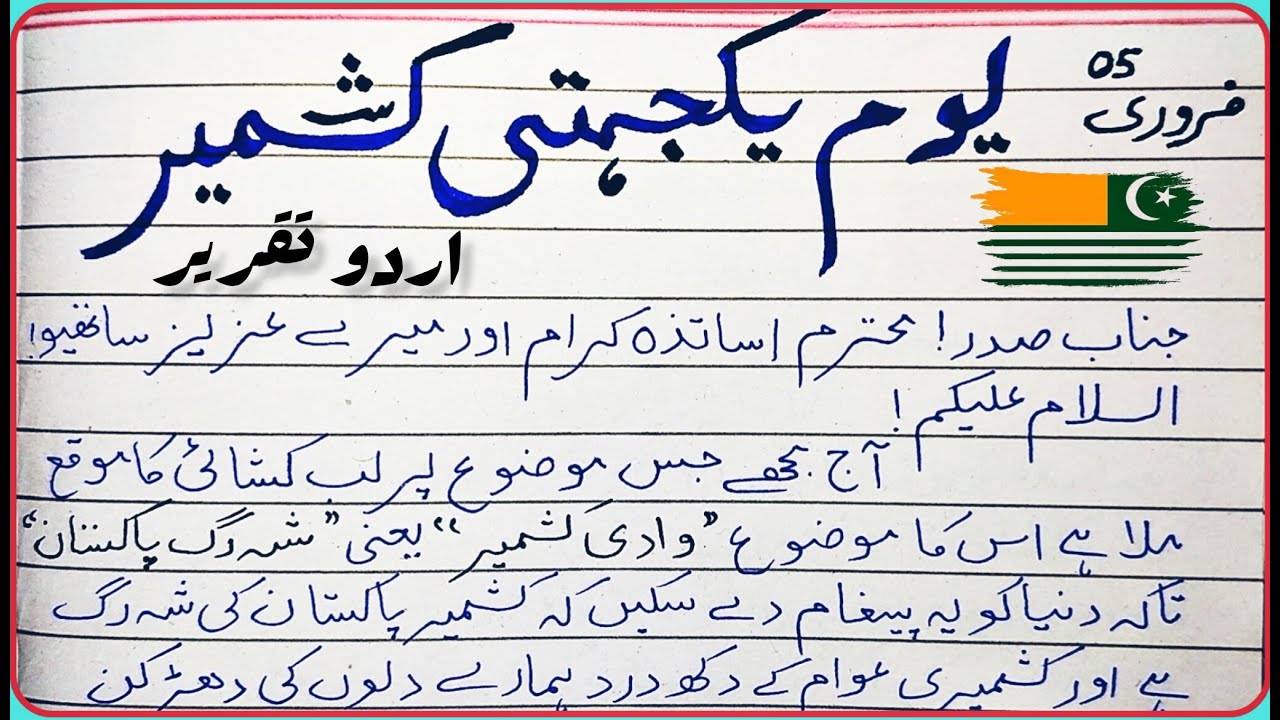 05 فروری
یوم یکجہتی کشمیر
اردو تقریر
جناب صدر! محترم اساتذہ کرام اور میرے عزیز ساتھیو!
السلام علیکم!
آج مجھے جس موضوع پر لب کشائی کا موقع
ملا ہے اس کا موضوع "وادی کشمیر" یعنی "شہ رگ پاکستان"
تاکہ دنیا کو یہ پیغام دے سکیں کہ کشمیر پاکستان کی شہ رگ
ہے اور کشمیری عوام کے دکھ درد ہمارے دلوں کی دھڑکن